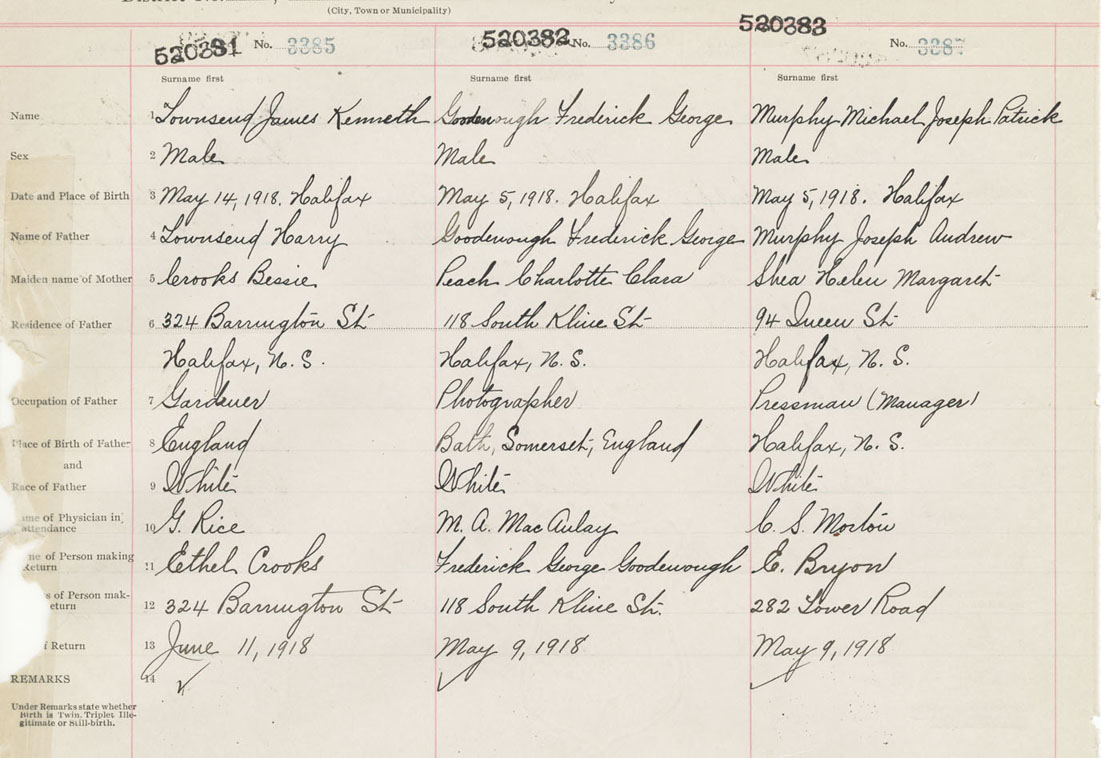 (City, Town or Municipality)
520381 No. 3385 520382 No. 3386 520383 No. 3387
Surname first Surname first Surname first
Name 1 Townsend James Kenneth Goodenough Frederick George Murphy Michael Joseph Patrick
Sex 2 Male Male Male
Date and Place of Birth 3 May 14, 1918, Halifax May 5, 1918. Halifax May 5, 1918. Halifax
Name of Father 4 Townsend Harry Goodenough Frederick George Murphy Joseph Andrew
Maiden name of Mother 5 Crooks Bessie Peach Charlotte Clara Shea Helen Margaret
Residence of Father 6 324 Barrington St 118 South Kline St 94 Queen St
Halifax, N. S. Halifax, N. S. Halifax, N. S.
Occupation of Father 7 Gardener Photographer Pressman (Manager)
Place of Birth of Father 8 England Bath, Somerset, England Halifax, N. S.
and
Race of Father 9 White White White
me of Physician in
attendance 10 G. Rice M. A. MacAulay C. S. Morton
ne of Person making
Return 11 Ethel Crooks Frederick George Goodenough E. Bryon
s of Person mak-
eturn 12 324 Barrington St 118 South Kline St. 282 Tower Road
f Return 13 June 11, 1918 May 9, 1918 May 9, 1918
REMARKS 14
Under Remarks state whether
Birth is Twin, Triplet Ille-
gitimate or Still-birth.